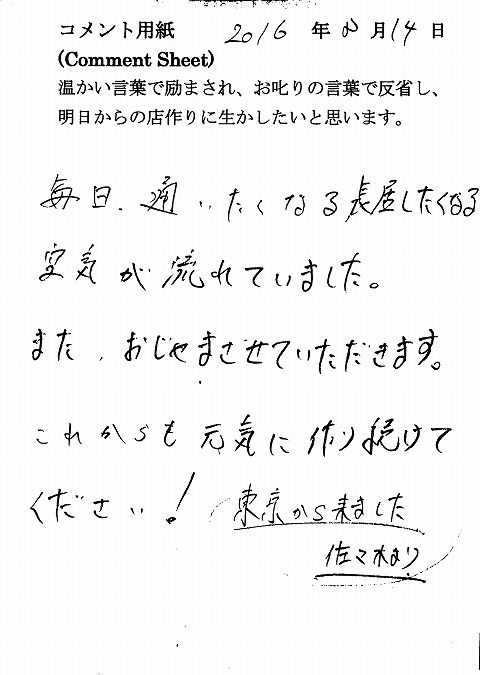 コメント用紙 2016 年 8 月 14 日
(Comment Sheet)
温かい言葉で励まされ、お叱りの言葉で反省し、
明日からの店作りに生かしたいと思います。
毎日、通いたくなる長居したくなる
空気が流れていました。
また、おじゃまさせていただきます。
これからも元気に作り続けて
ください！
東京から来ました
佐々木より